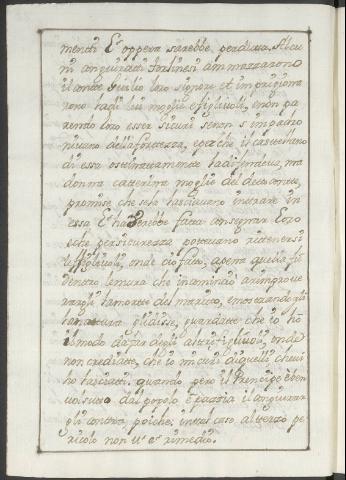 menti È oppera sarebbe perduta. Alcu
ni congiurati Forlinesi ammazzarono
il conte loro signore et imprigiona
rono la di lui moglie e figliuoli, e non pa
rendo loro esser sicuri se non s'impadro
nivano della fortezza, e perche il castellano
di essa ostinatamente la difendeva, ma
donna catterina moglie del detto conte,
promise che se lo lasciavano intrare in
essa l'haverebbe fatta consegnar loro
e che per sicurezza potevano rittenersi
li figliuoli, onde ciò fatto, apena quella fù
dentro le mura che incominciò a rimprove
rargli la morte del marito, e mostrandogli
la natura gli disse, guardatte che io hò
il modo da far degli altri figliuoli, onde
non crediatte, che io mi curi di quelli che vi
ho lasciatti. quando però il Prencipe è ben
voluto dal popolo è pazzia il congiurar
gli contro, poiche in tal caso al terzo pe
ricolo non v'è rimedio.